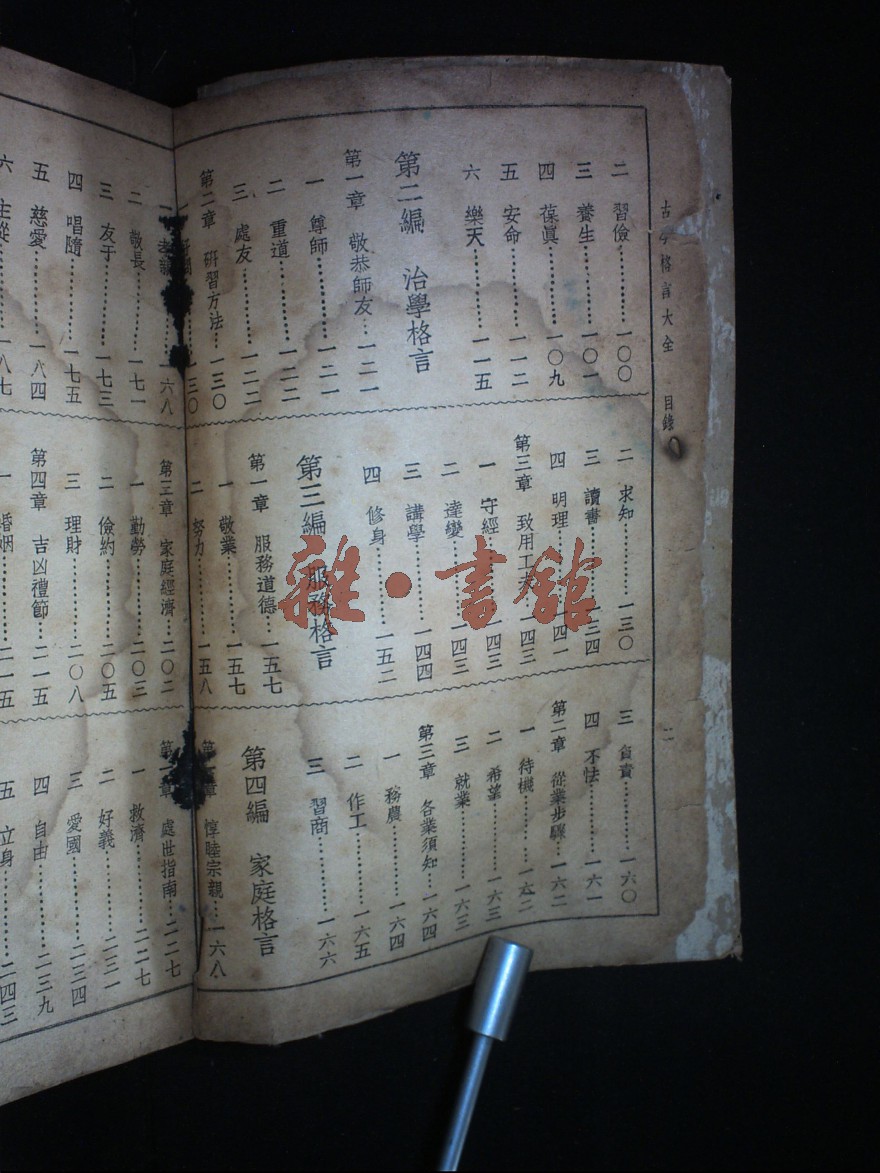 古今格言大全 目錄
二
二 習儉……一〇〇
三 養生……一〇一
四 葆眞……一〇九
五 安命……一一二
六 樂天……一一五
第二編 治學格言
第一章 敬恭師友…一二一
一 尊師……一二一
二 重道……一二二
三 處友……一二三
第二章 硏習方法…一三〇
二 求知……一三〇
三 讀書……一三四
四 明理……一四一
第三章 致用工夫…一四三
一 守經……一四三
二 達變……一四三
三 講學……一四四
四 修身……一五二
第三編 服務格言
第一章 服務道德…一五七
一 敬業……一五七
二 努力……一五八
三 負責……一六〇
四 不怯……一六一
第二章 從業步驟…一六二
一 待機……一六二
二 希望……一六三
三 就業……一六三
第三章 各業須知…一六四
一 務農……一六四
二 作工……一六五
三 習商……一六六
第四編 家庭格言
惇睦宗親…一六八
一六八
二 敬長……一七一
三 友于……一七三
四 唱隨……一七五
五 慈愛……一八四
六 主從……一八七
第三章 家庭經濟…二〇二
一 勤勞……二〇三
二 儉約……二〇五
三 理財……二〇八
第四章 吉凶禮節…二一五
一 婚姻……二一五
處世指南…二二七
一 救濟……二二七
二 好義……二三一
三 愛國……二三四
四 自由……二三九
五 立身……二四三
雜·書館